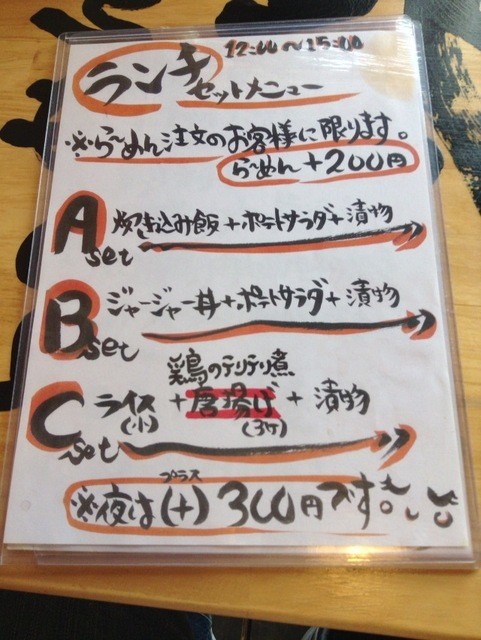 12:00〜15:00
ランチ
セットメニュー
※らーめん注文のお客様に限ります。
らーめん+200円
A set 炊き込み飯+ポテトサラダ+漬物
B set ジャージャー丼+ポテトサラダ+漬物
鶏のテリテリ煮
C set ライス(小)+唐揚げ(3ケ)+漬物
プラス
※夜は(+)300円です。